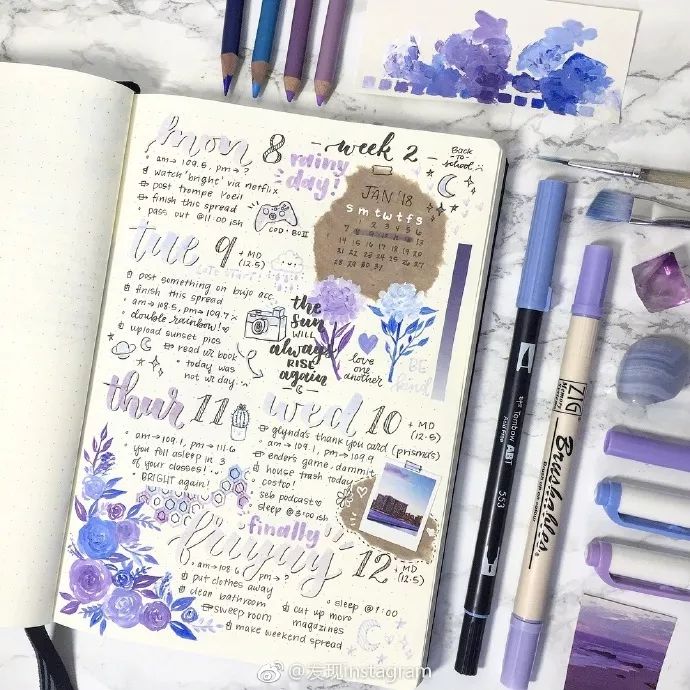 mon 8
- week 2 -
Back
-to-
school
rainy
day!
am → 109.5, pm → ?
watch "bright" via netflix
post trompe l'oeil
finish this spread
pass out @ 11:00 ish
COD • BOII
JAN '18
s m t w t f s
1 2 3 4 5 6
7 8 9 10 11 12 13
14 15 16 17 18 19 20
21 22 23 24 25 26 27
28 29 30 31
tue 9 + MD
(12.5)
post something on bujo acc.
finish this spread
am → 108.5, pm → 109.7
double rainbow!
upload sunset pics
read ur book
today was
not ur day
the
sun
WILL
always
RISE
again
love
one
another
BE
kind
thur 11
am → 109.1, pm → 111.6
you fell asleep in 3
of your classes!
BRIGHT again!
wed 10 + MD
(12.5)
glynda's thank you card (prismers)
am → 109.1, pm → 109.9
ender's game, dammit
house trash today
costco!
seb podcast
sleep @ 3:00 ish
finally
friyay 12 + MD
(12.5)
am → 108.6, pm → ?
put clothes away
clean bathroom
sweep room
make weekend spread
sleep @ 1:00
cut up more
magazines
Tombow ABT
553
ZIG
Memory
Brushables
@发现instagram